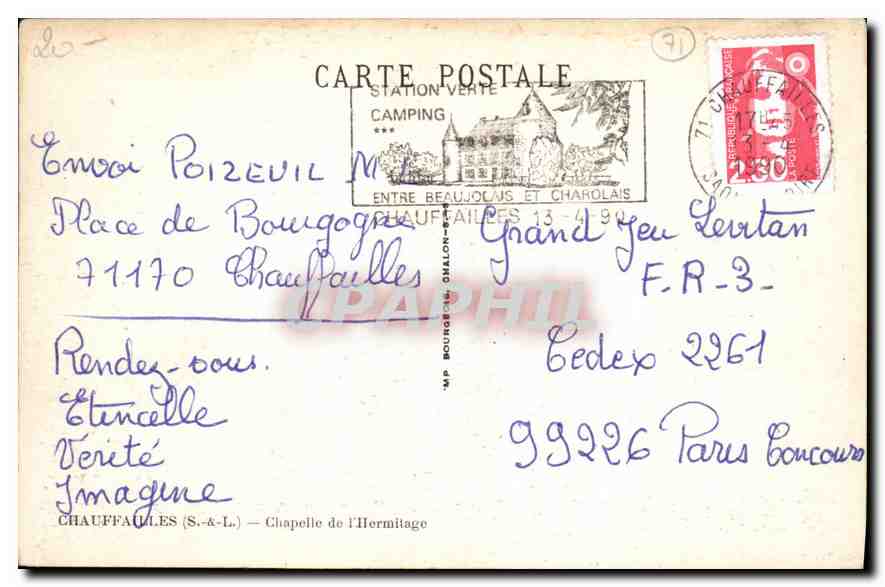 20 -
71
CARTE POSTALE
STATION VERTE
CAMPING
***
ENTRE BEAUJOLAIS ET CHAROLAIS
CHAUFFAILLES 13-4-90
71 CHAUFFAILLES
17H45
13-4
1990
REPUBLIQUE FRANÇAISE
2.30
LA POSTE
Envoi POIZEUIL M
Place de Bourgogne
71170 Chauffailles
Rendez-vous.
Etincelle
Vérité
Imagine
Grand Jeu Levitan
F.R-3-
Cedex 2261
99226 Paris Concours
MP BOURGEOIS, CHALON-S-S
CPAPHIL
CHAUFFAILLES (S.-&-L.) — Chapelle de l'Hermitage